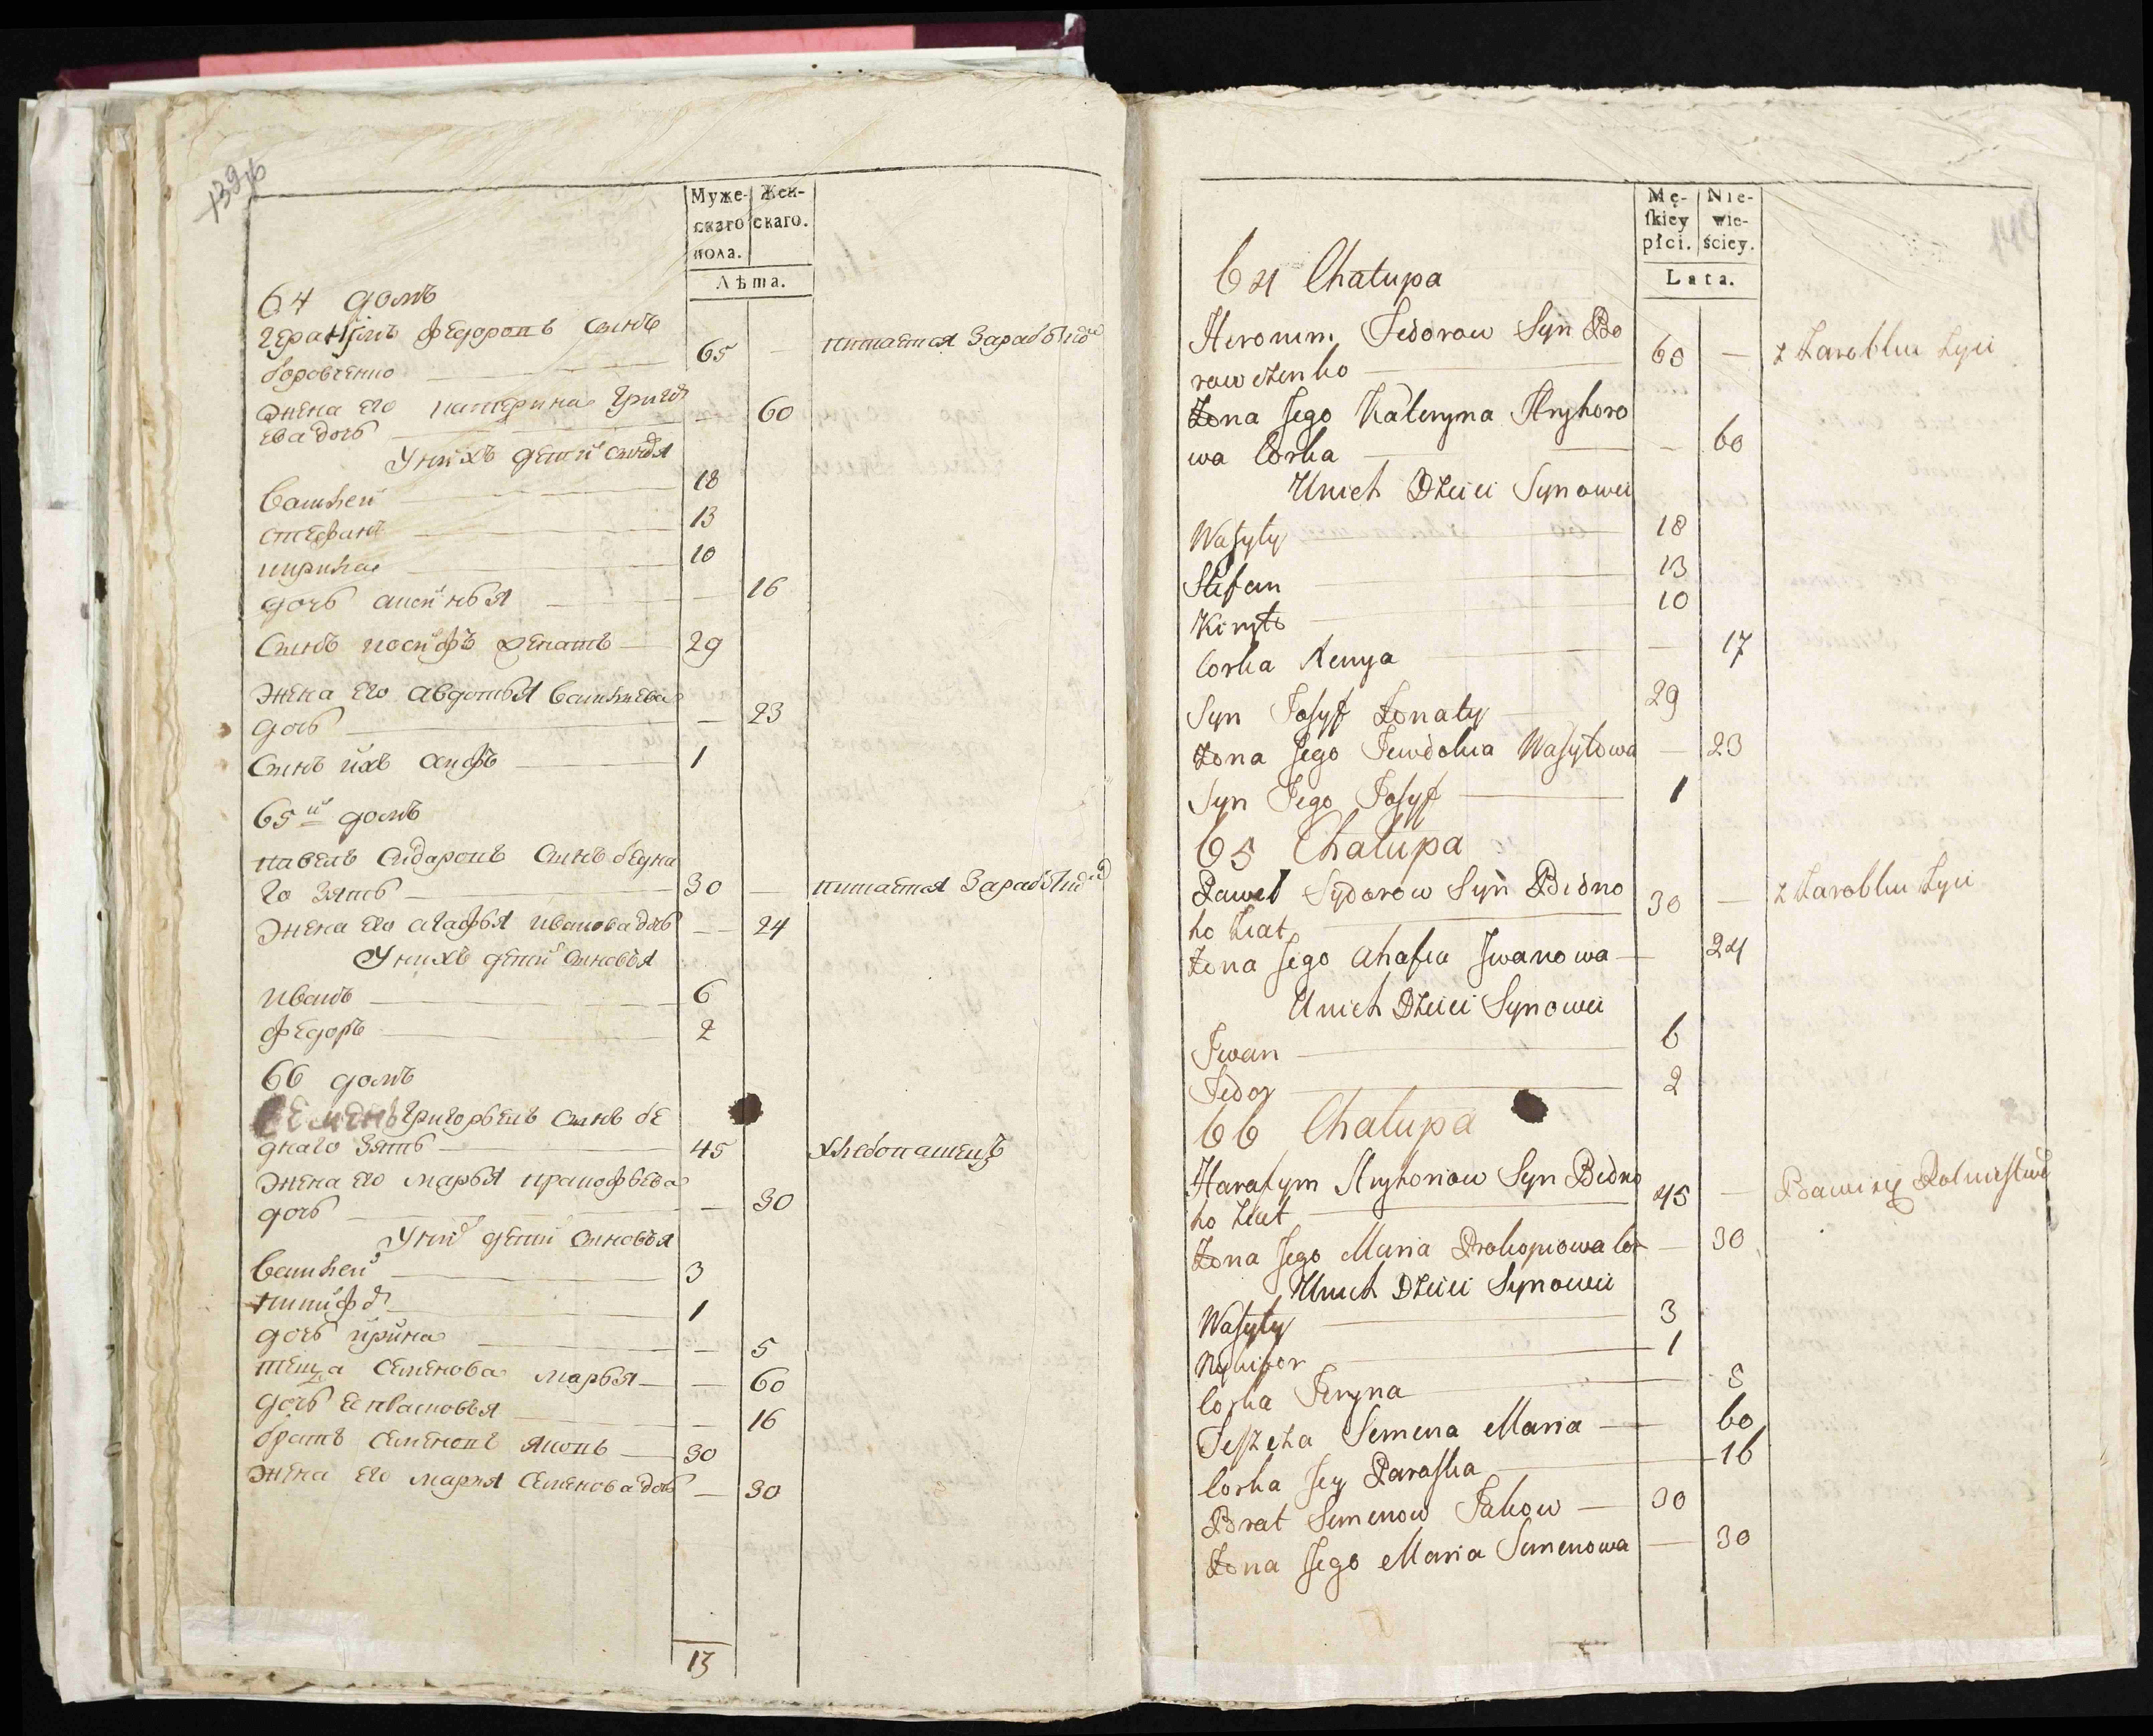 139об
Муже- Жен-
скаго скаго.
пола.
Лѣта.
64 домъ
Герасимъ Федоровъ сынъ
боровченко 65 — питается Заработко
Жена его катерина Григо
ева дочь — 60
У нихъ дети сыновья
Василей 18
стефанъ 13
кирила 10
дочь аксинья — 16
Сынъ иосифъ женатъ 29
Жена его авдотья василиева
дочь — 23
Сынъ ихъ осифъ 1
65й домъ
павелъ Сидаровъ сынъ бедна
го зять 30 — питается Заработко
Жена его агафья иванова дочь — 24
У нихъ дети сыновья
иванъ 6
федоръ 2
66 домъ
Семенъ григорьевъ сынъ бе
днаго зять 45 хлебопашецъ
Жена его марья пракофьева
дочь — 30
У них дети сыновья
Василей 3
никифо 1
дочь ирина — 5
теща семенова марья — 60
дочь ее — 16
братъ семеновъ яковъ 30
Жена его мария семенова дочь — 30
13
140
Mę- Nie-
skiey wie-
płci. ściey.
Lata.
64 Chałupa
Heronim Fedorow Syn Bo
rowczenko 60 — z Zarobku Żyie
Żona Jego Kateryna Hryhoro
wa Corka — 60
U nich Dzieci Synowie
Wasyly 18
Stefan 13
Kiryło 10
Corka Xenya — 17
Syn Josyf Żonaty 29
Żona Jego Jewdokia Wasylowa — 23
Syn Jego Josyf 1
65 Chałupa
Paweł Sydorow Syn Bidno
ho Ziat 30 — z Zarobku Żyie
Żona Jego Ahafia Jwanowa — 24
U nich Dzieci Synowie
Jwan 6
Fedor 2
66 Chałupa
Harasym Hryhoriow Syn Bidno
ho Ziat 45 — Bawi się Rolnictwe
Żona Jego Maria Prokopiowa Cor — 30
U nich Dzieci Synowie
Wasyly 3
Nykifor 1
Corka Jeryna 5
Teszcza Semena Maria — 60
Corka Jey Paraska 16
Brat Semenow Jakow — 30
Żona Jego Maria Semenowa — 30